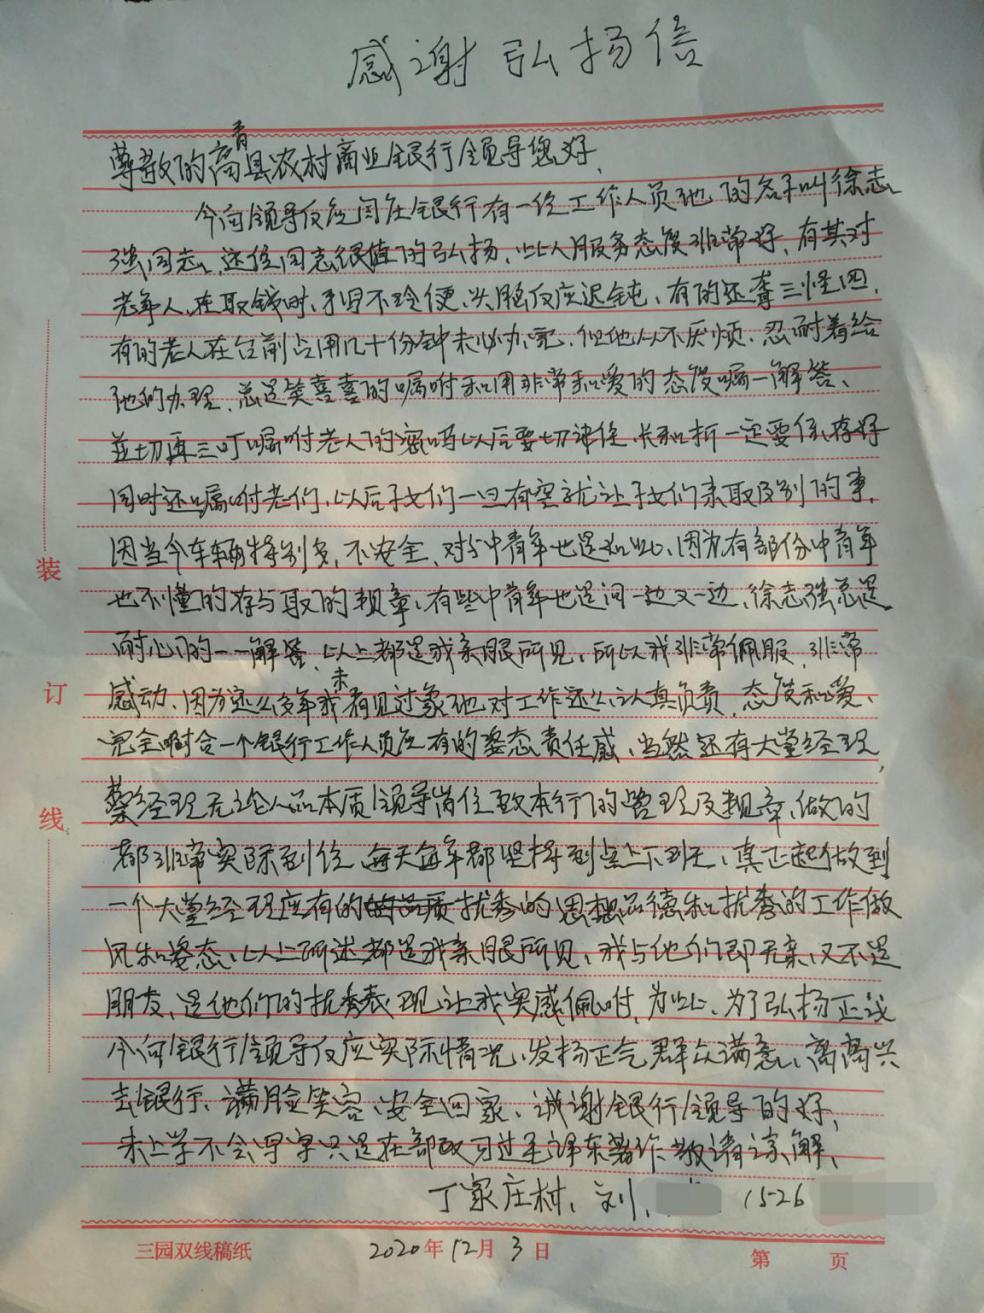 感谢弘扬信
尊敬的高青县农村商业银行领导您好
今向领导反应间在银行有一位工作人员他的名子叫徐志
强同志、这位同志很值的弘扬、此人服务态度非常好、有其对
老年人、在取钱时、手脚不玲便、头脑反应迟钝、有的还聋三怪四、
有的老人在台前占用几十份钟未必办完、但他从不厌烦、忍耐着给
他的办理、总是笑喜喜的嘱咐和用非常和爱的态度嘱一解答、
并切再三叮嘱咐老人的密吗以后要切记住、长和折一定要保存好
同时还嘱咐老们、以后子女们一旦有空就让子女们来取及别的事、
因当今车辆特别多、不安全、对于中青年也是如此、因为有部份中青年
也不懂的存与取的规章、有些中青年也是问一边又一边、徐志强总是
耐心的一一解答、以上都是我亲眼所见、所以我非常佩服、非常
感动、因为这么多年我未看见过象他对工作这么认真负责、态度和爱、
完全附合一个银行工作人员应有的姿态责任感、当然还有大堂经理、
蔡经理无论人品本质领导岗位致本行的管理及规章、做的
都非常实际到位、每天每年都坚持到岗上下班、真正起做到
一个大堂经理应有的优秀的思想品德和优秀的工作做
风和姿态、以上所述都是我亲眼所见、我与他们即无亲、又不是
朋友、是他们的优秀表现让我实感佩咐、为此、为了弘扬正议
今向银行领导反应实际情况、发扬正气群众满意、高高兴
去银行、满脸笑容、安全回家、诚谢银行领导的好、
未上学不会写字只是在部队习过毛泽东著作敬请谅解、
丁家庄村、刘、 1526
装
订
线
三园双线稿纸 2020年12月3日 第 页